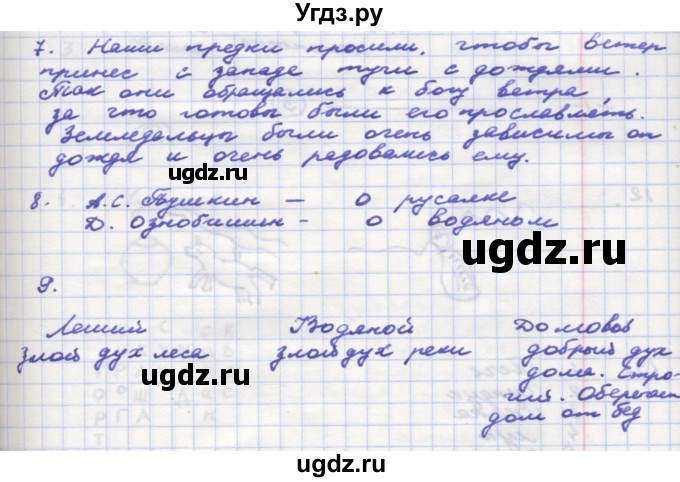 Угдз.ру
7. Наши предки просили, чтобы ветер
принес с запада тучи с дождями.
Так они обращались к богу ветра
за что готовы были его прославлять.
Земледельцы были очень зависимы от
дождя и очень радовались ему.
8. А.С. Пушкин – о русалке
Д. Ознобишин – о водяном
uгдz.ru
9.
Леший Водяной Домовой
злой дух леса злой дух реки добрый дух
дома. Стро-
гий. Оберегает
дом от бед
uгдz.ru
uгдz.ru